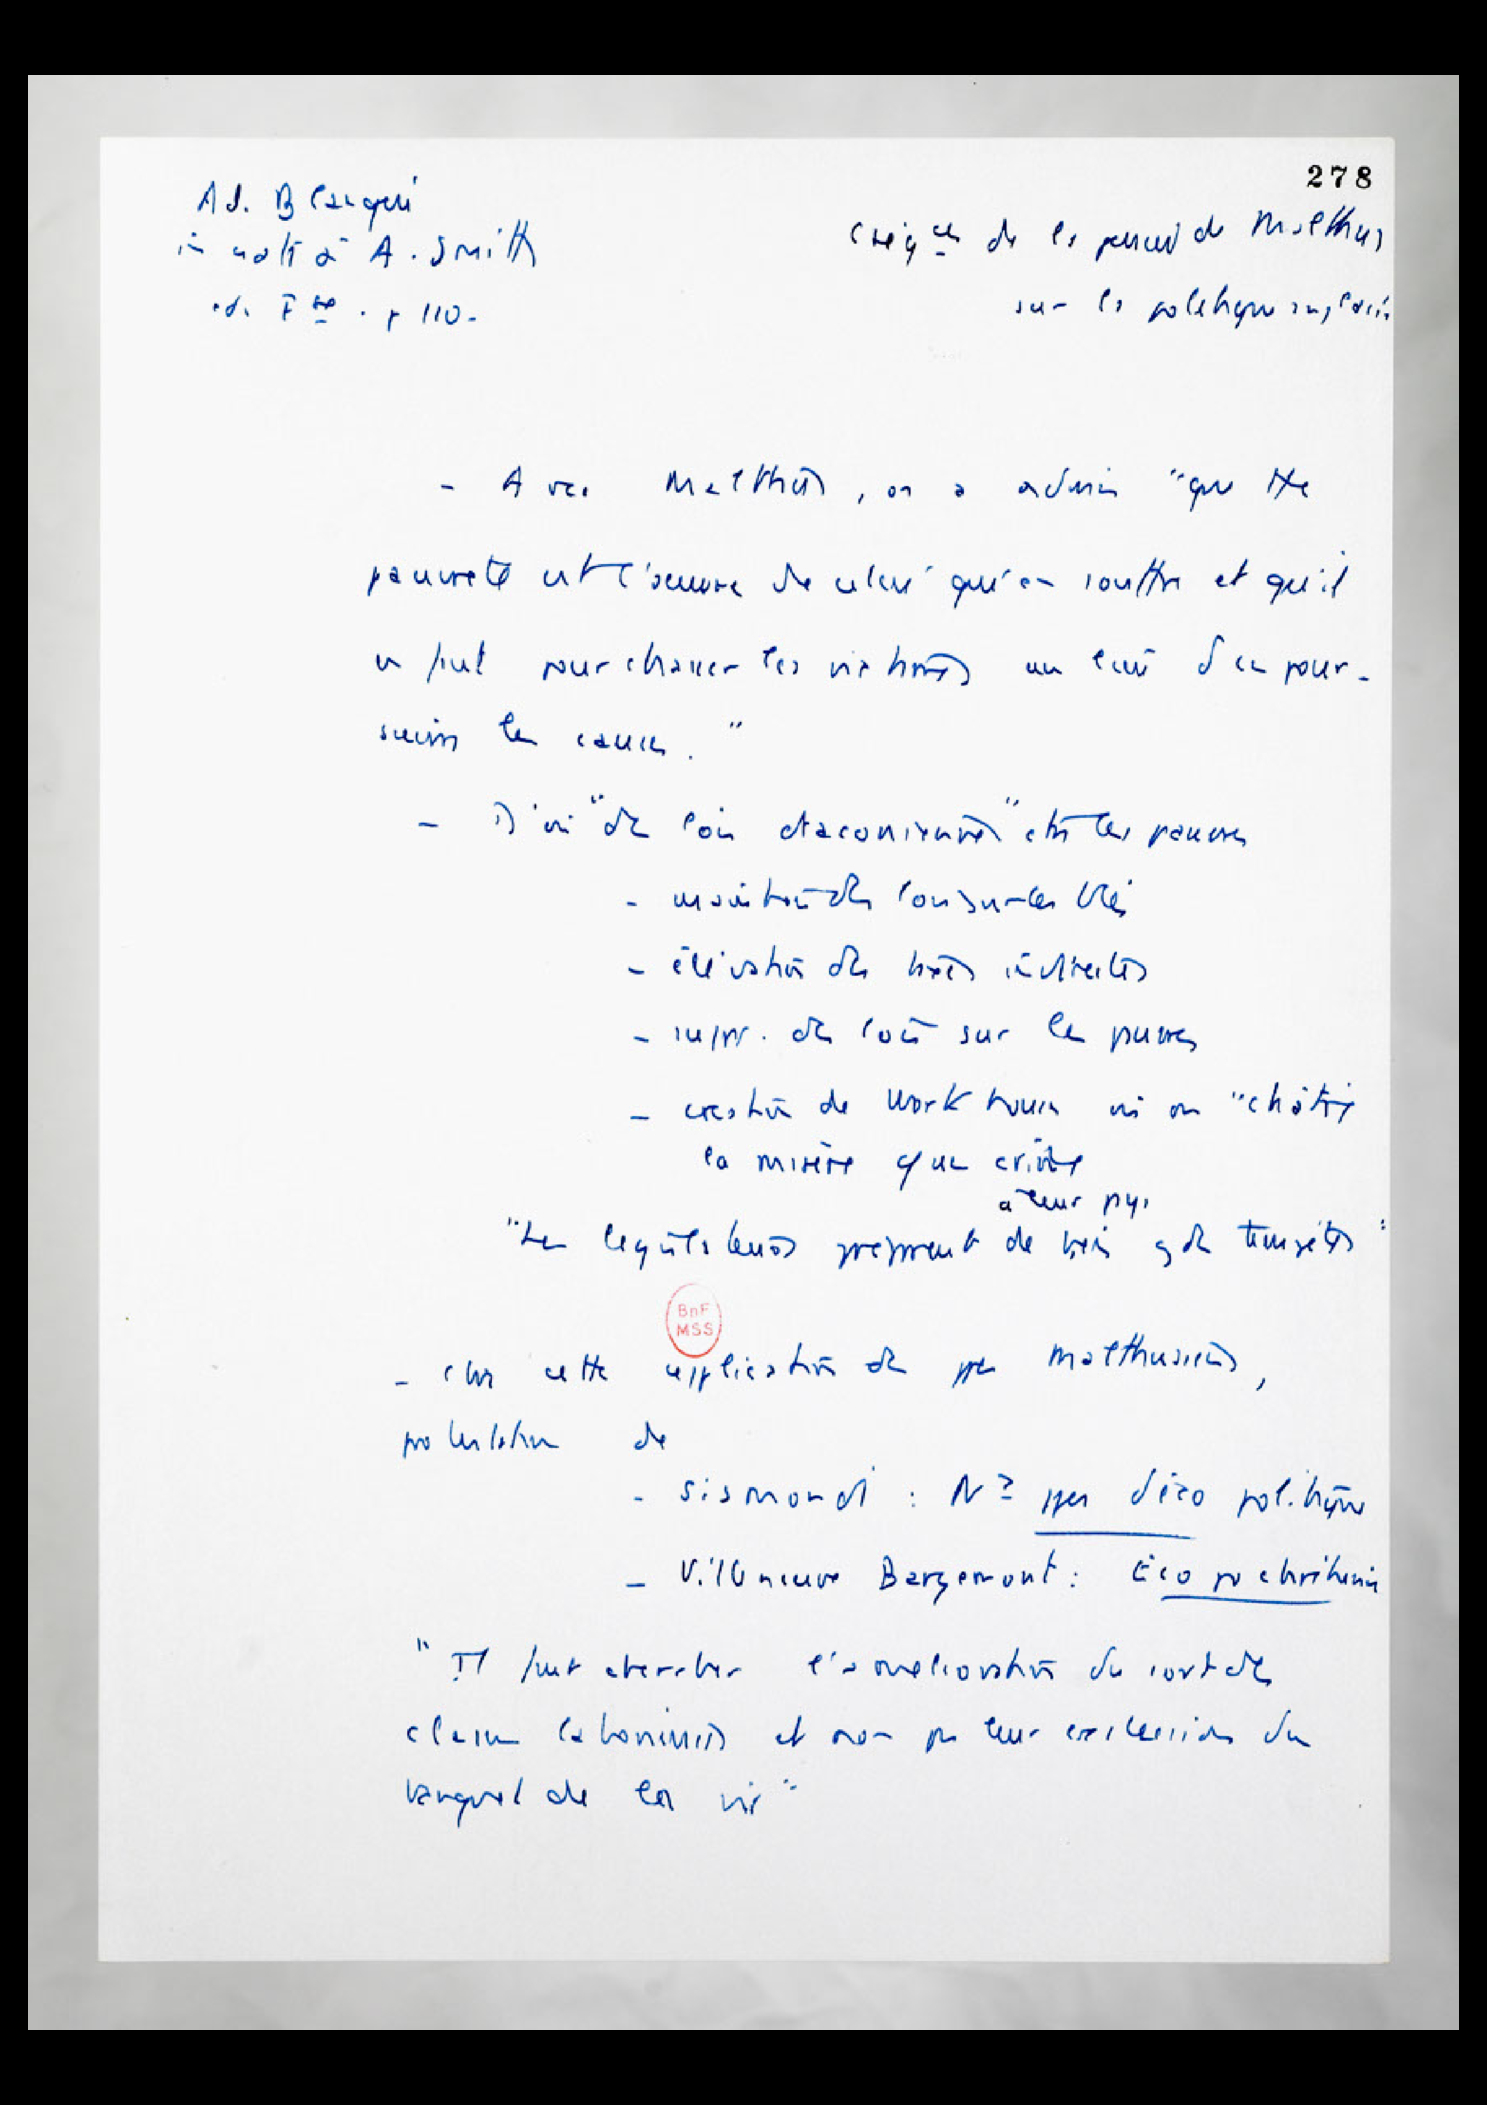 278
Ad. Blanqui
in note à A. Smith
éd. Fse . p 110.
Cséqces de la pensée de Malthus
sur la politique anglaise
- Avec Malthus, on a admis "que tte
pauvreté est l'oeuvre de celui qui en souffre et qu'il
en faut pourchasser les victimes au lieu d'en pour-
suivre les causes."
- D'où "des lois draconiennes" ctre les pauvres
- maintien des lois sur les blés
- élévation des taxes indirectes
- suppr. des lois sur les pauvres
- création de Work houses où on "châtie
la misère que crime
à leur pays
"Les législateurs préparent de bien des tempêtes"
BnF
MSS
- ctre cette application des ppes malthusiens,
protestation de
- Sismondi : Nx ppes d'éco politique
- Villeneuve Bargemont : Eco po chrétienne
"Il faut chercher l'amélioration du sort des
classes laborieuses et non pas leur exclusion du
banquet de la vie"